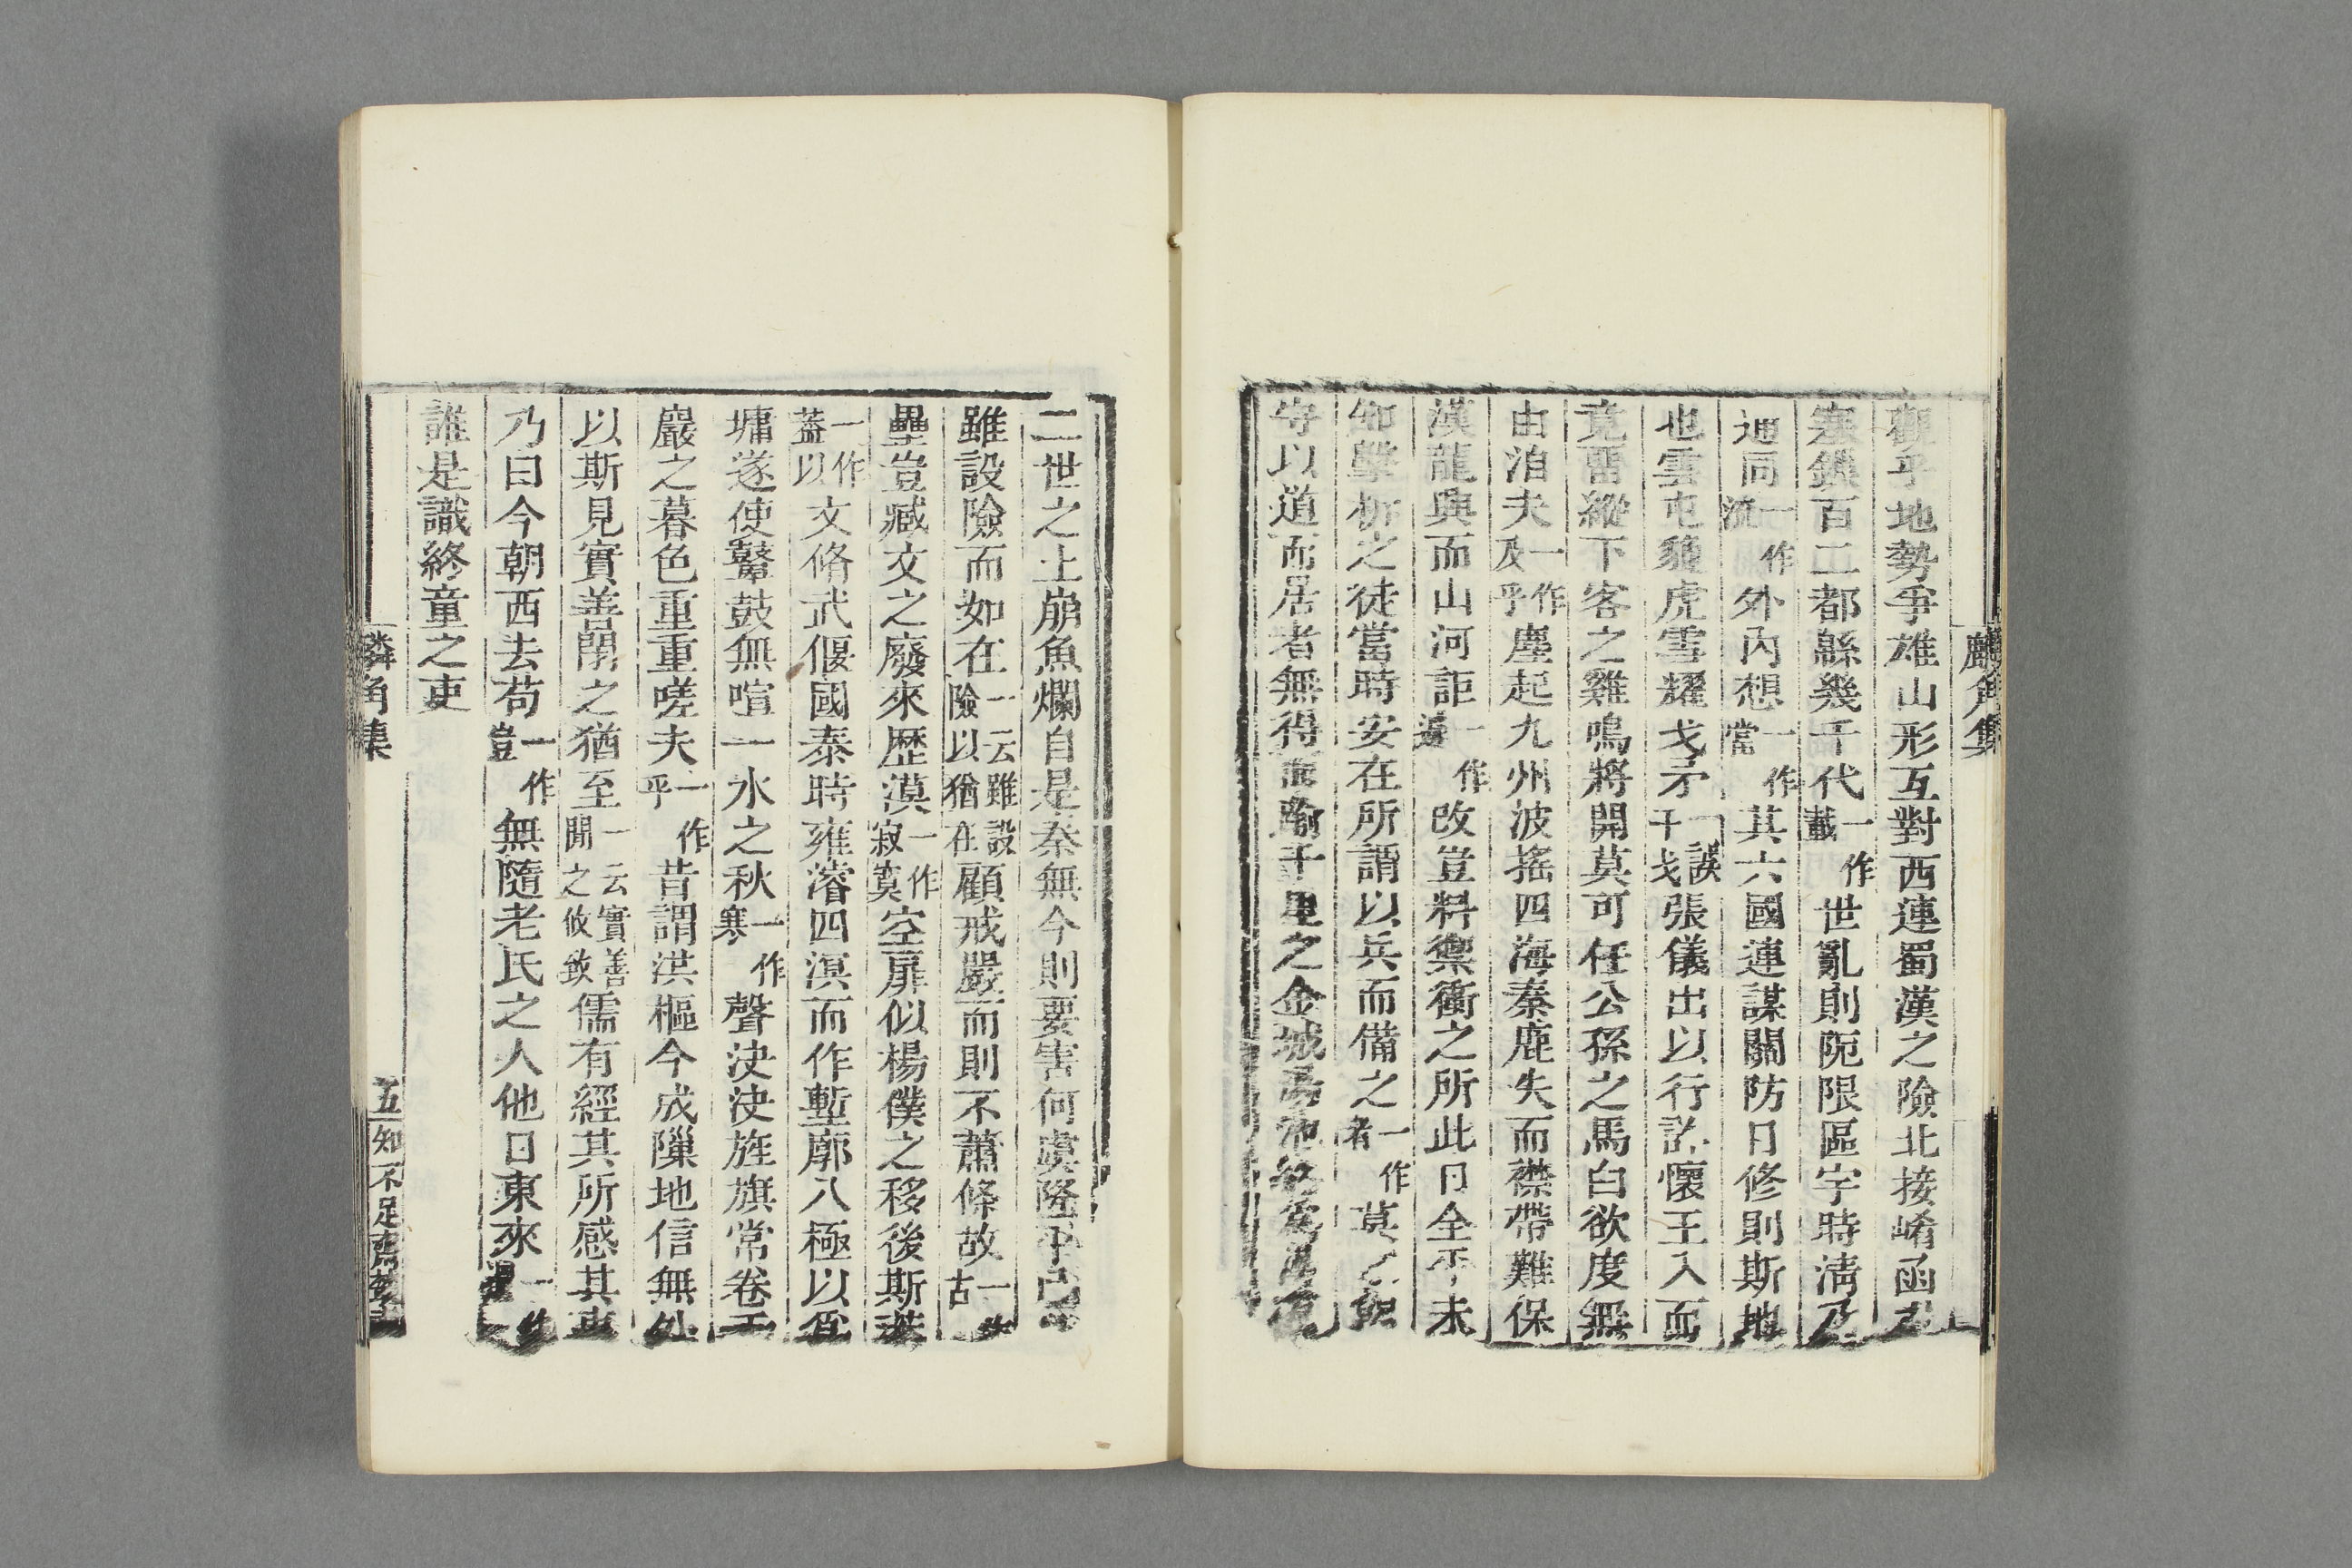 麟角集
觀乎地勢爭雄山形互對西連蜀漢之險北接崤函之
塞鎖百二都縣幾千代一作載世亂則阨限區宇時清乃
通同一作流外內想一作當其六國連謀關防日修則斯地
也雲屯貙虎雪耀戈矛一誤干戈張儀出以行詐懷王入而
竟畱縱下客之雞鳴將開莫可任公孫之馬白欲度無
由洎夫一作及乎塵起九州波搖四海秦鹿失而襟帶難保
漢龍興而山河詎一作遽改豈料禦衝之所此日全平未
知擊柝之徒當時安在所謂以兵而備之一作者莫之
守以道而居者無得而踰千里之金城湯池
二世之土崩魚爛自是秦無今則要害何虞隆平已
雖設險而如在一云雖設險以猶在顧戒嚴而則不蕭條故一作古
壘豈臧文之廢來歷漠一作寂寞空扉似楊僕之移後斯蓋
一作蓋以文脩武偃國泰時雍濬四溟而作塹廓八極以爲
墉遂使鼙鼓無喧一水之秋一作寒聲決決旌旗常卷千
巖之暮色重重嗟夫一作乎昔謂洪樞今成隟地信無外
以斯見實善閉之猶至一云實善閉之攸致儒有經其所感其事
乃曰今朝西去苟一作豈無隨老氏之人他日東來一作
誰是識終童之吏
麟角集
五
知不足齋叢書